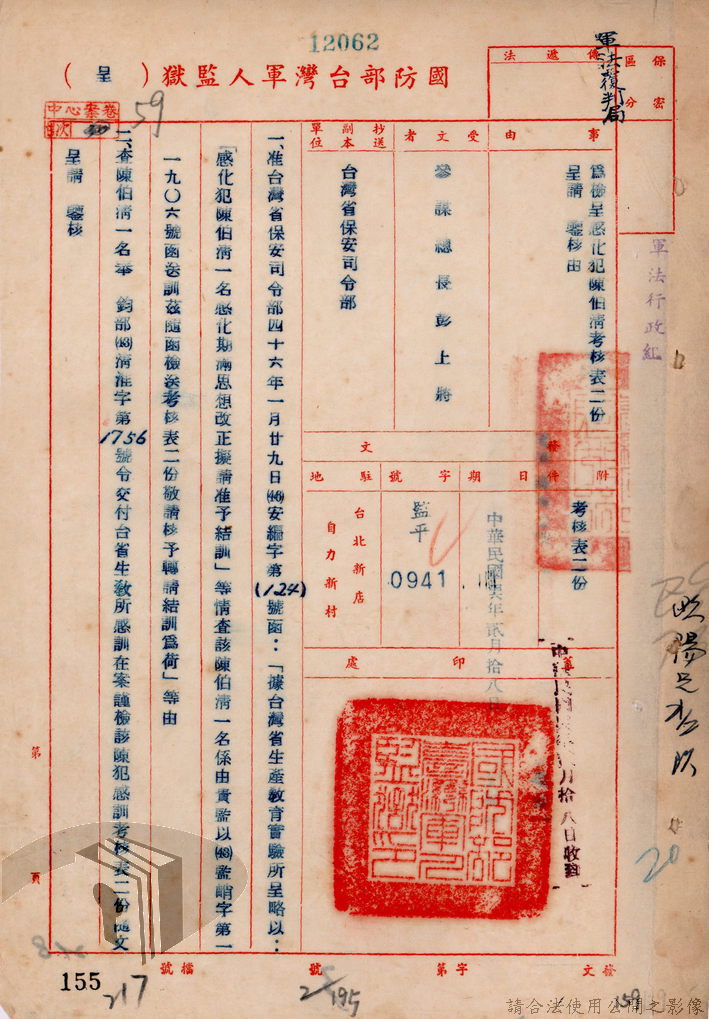 12062
國防部台灣軍人監獄(呈)
保密
區分
傳遞法
軍法覆判局
軍法行政組
中心案卷
59
事由
為檢呈感化犯陳伯清考核表二份
呈請 鑒核由
受文者
參謀總長彭上將
抄送
副本
單位
台灣省保安司令部
發文
附件
考核表二份
日期
中華民國
年貳月拾八日
字號
監平
0941
駐地
台北新店
自力新村
蓋印處
國防部臺灣軍人監獄印
月拾八日收到
一、准台灣省保安司令部四十六年一月廿九日(46)安編字第(124)號函:「據台灣省生產教育實驗所呈略以:
「感化犯陳伯清一名感化期滿思想改正擬請准予結訓」等情查該陳伯清一名係由貴監以(43)監峭字第一
一九〇六號函送訓茲隨函檢送考核表二份敬請核予轉請結訓為荷」等由
二、查陳伯清一名奉 鈞部(43)清淮字第1756號令交付台省生教所感訓在案謹檢該陳犯感訓考核表二份隨文
呈請 鑒核
第
頁
20
155
217
檔號
號
195
字第
發文
159
請合法使用公開之影像